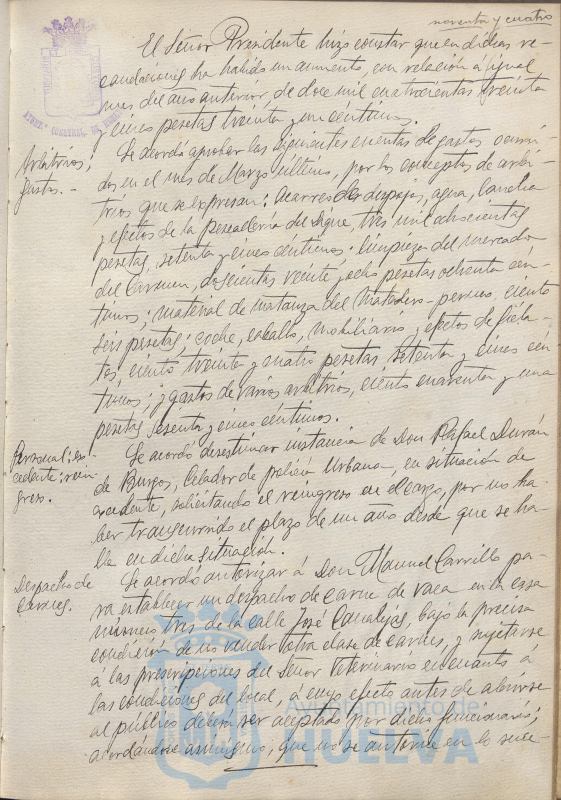 noventa y cuatro
El Señor Presidente hizo constar que en dichas re-
caudaciones ha habido un aumento, con relación á igual
mes del año anterior de doce mil cuatrocientas treinta
y cinco pesetas treinta y un céntimos.
Arbitrios;
gastos.-
Se acordó aprobar las siguientes cuentas de gastos ocurri-
dos en el mes de Marzo último, por los conceptos de arbi-
trios que se expresan: acarreo de despojos, agua,
y efectos de la pescadería del dique, tres mil doscientas
pesetas, setenta y cinco céntimos: limpieza del mercado
del Carmen, doscientas veinte y ocho pesetas ochenta cen-
timos; material de matanza del Matadero-perneo, ciento
seis pesetas; coche, caballo, mobiliario y efectos de fiela-
tos, ciento treinta y cuatro pesetas setenta y cinco cen
timos; y gastos de varios arbitrios, ciento cuarenta y una
pesetas, sesenta y cinco céntimos.
Personal; ex-
cedente; rein-
greso.
Se acordó desestimar instancia de Don Rafael Durán
de Burgos, Celador de policía Urbana, en situación de
excedente, solicitando el reingreso en el cargo, por no ha-
ber transcurrido el plazo de un año desde que se ha-
lla en dicha situación.
Despacho de
carnes.
Se acordó autorizar á Don Manuel Carrillo pa-
ra establecer un despacho de carne de vaca en la casa
número tres de la calle José Canalejas, bajo la precisa
condición de no vender otra clase de carnes, y sujetarse
á las prescripciones del Señor Veterinario en cuanto á
las condiciones del local, á cuyo efecto antes de abrirse
al público deberá ser aceptado por dicho funcionario;
acordándose asimismo, que no se autorice en lo suce-
Ayuntamiento de
HUELVA